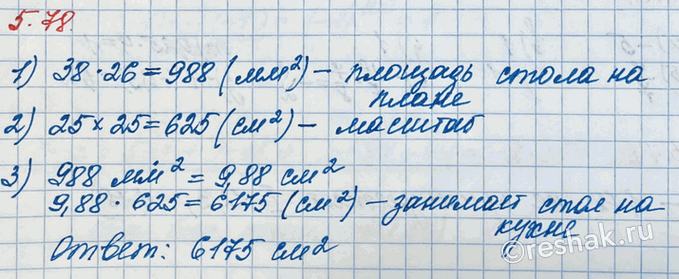 5.78.
1) 38·26=988 (мм²) – площадь стола на
плане
2) 25×25=625 (см²) – масштаб
3) 988 мм² = 9,88 см²
9,88·625=6175 (см²) – занимает стол на
кухне
Ответ: 6175 см²
©reshak.ru